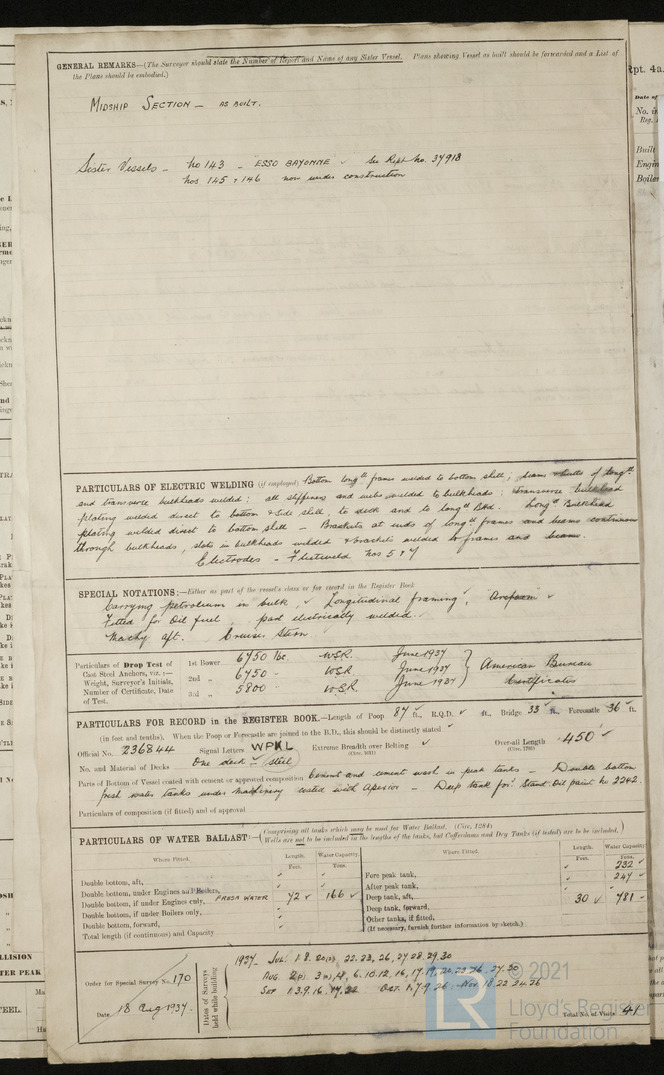 GENERAL REMARKS—(The Surveyor should state the Number of Report and Name of any Sister Vessel. Plans showing Vessel as built should be forwarded and a List of
the Plans should be embodied.)
MIDSHIP SECTION — AS BUILT.
Sister Vessels — No 143 — ESSO BAYONNE ✓ See Rept No. 37918
Nos 145 & 146 now under construction
PARTICULARS OF ELECTRIC WELDING (if employed) Bottom longtl frames welded to bottom shell; seams & butts of longtl
and transverse bulkheads welded; all stiffeners and webs welded to bulkheads; transverse bulkhead
plating welded direct to bottom & side shell, to deck and to longtl Bhd. Longtl Bulkhead
plating welded direct to bottom shell — Brackets at ends of longtl frames and beams continuous
through bulkheads, slots in bulkheads welded & brackets welded to frames and beams.
Electrodes - Fleetweld Nos 5 & 7
SPECIAL NOTATIONS:—Either as part of the vessel's class or for record in the Register Book
Carrying petroleum in bulk, ✓ Longitudinal framing ✓
Fitted for Oil fuel, part electrically welded.
Machy aft. Cruiser Stern
Particulars of Drop Test of
Cast Steel Anchors, viz.:—
Weight, Surveyor's Initials,
Number of Certificate, Date
of Test.
1st Bower 6750 lbs. W.S.R. June 1937
2nd „ 6750 - W.S.R. June 1937
3rd „ 5800 - W.S.R. June 1937
American Bureau
Certificates
PARTICULARS FOR RECORD in the REGISTER BOOK.—Length of Poop 87 ft., R.Q.D. ✓ ft., Bridge 33 ft., Forecastle 36 ft.
(in feet and tenths). When the Poop or Forecastle are joined to the B.D., this should be distinctly stated ✓
Official No. 236844 Signal Letters WPKL Extreme Breadth over Belting ✓ Over-all Length 450 ✓
(Circ. 1611) (Circ. 1703)
No. and Material of Decks One deck - steel
Parts of Bottom of Vessel coated with cement or approved composition Cement and cement wash in peak tanks — Double bottom
fresh water tanks under machinery coated with Apexior — Deep tank for'd Stand. Oil paint No 2242.
Particulars of composition (if fitted) and of approval
PARTICULARS OF WATER BALLAST:—(Comprising all tanks which may be used for Water Ballast. (Circ. 1284)
Wells are not to be included in the lengths of the tanks, but Cofferdams and Dry Tanks (if tested) are to be included.)
Where Fitted. Length. Water Capacity.
Feet. Tons.
Double bottom, aft,
Double bottom, under Engines and Boilers,
Double bottom, if under Engines only, FRESH WATER 72 ✓ 166 ✓
Double bottom, if under Boilers only,
Double bottom, forward,
Total length (if continuous) and Capacity
Where Fitted. Length. Water Capacity
Feet. Tons.
Fore peak tank, ✓ 232 ✓
After peak tank, ✓ 247 ✓
Deep tank, aft, 30 ✓ 781 ✓
Deep tank, forward,
Other tanks, if fitted,
(If necessary, furnish further information by sketch.)
Order for Special Survey No. 170
Date 18 Aug 1937.
Dates of Surveys
held while building
1937.
Total No. of Visits 41
© 2021
Lloyd's Register
Foundation
Rpt. 4a.
Date of
No. in
Reg.
Built
Engin
Boiler